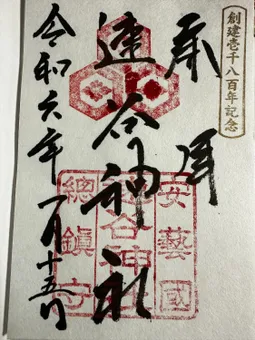 創建壱千八百年記念
奉拝
速谷神社
令和六年一月十五日
安藝國
速谷神社
總鎮守